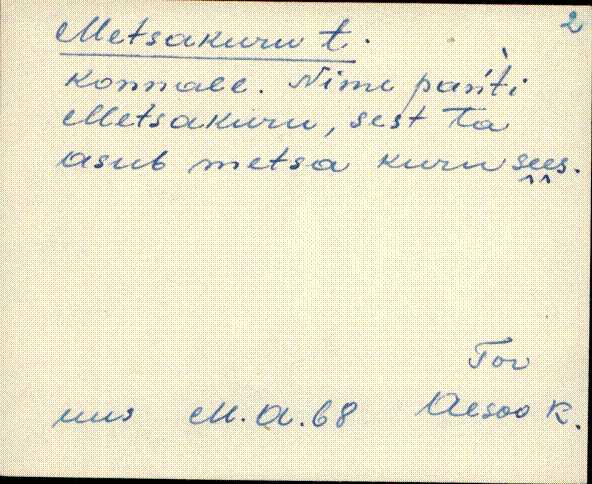 2
Metsakuru t.
konnale. Nime pańti
Metsakuru, sest ta
asub metsa kuru sees.
Tor
uus M.A.68 Aesoo k.